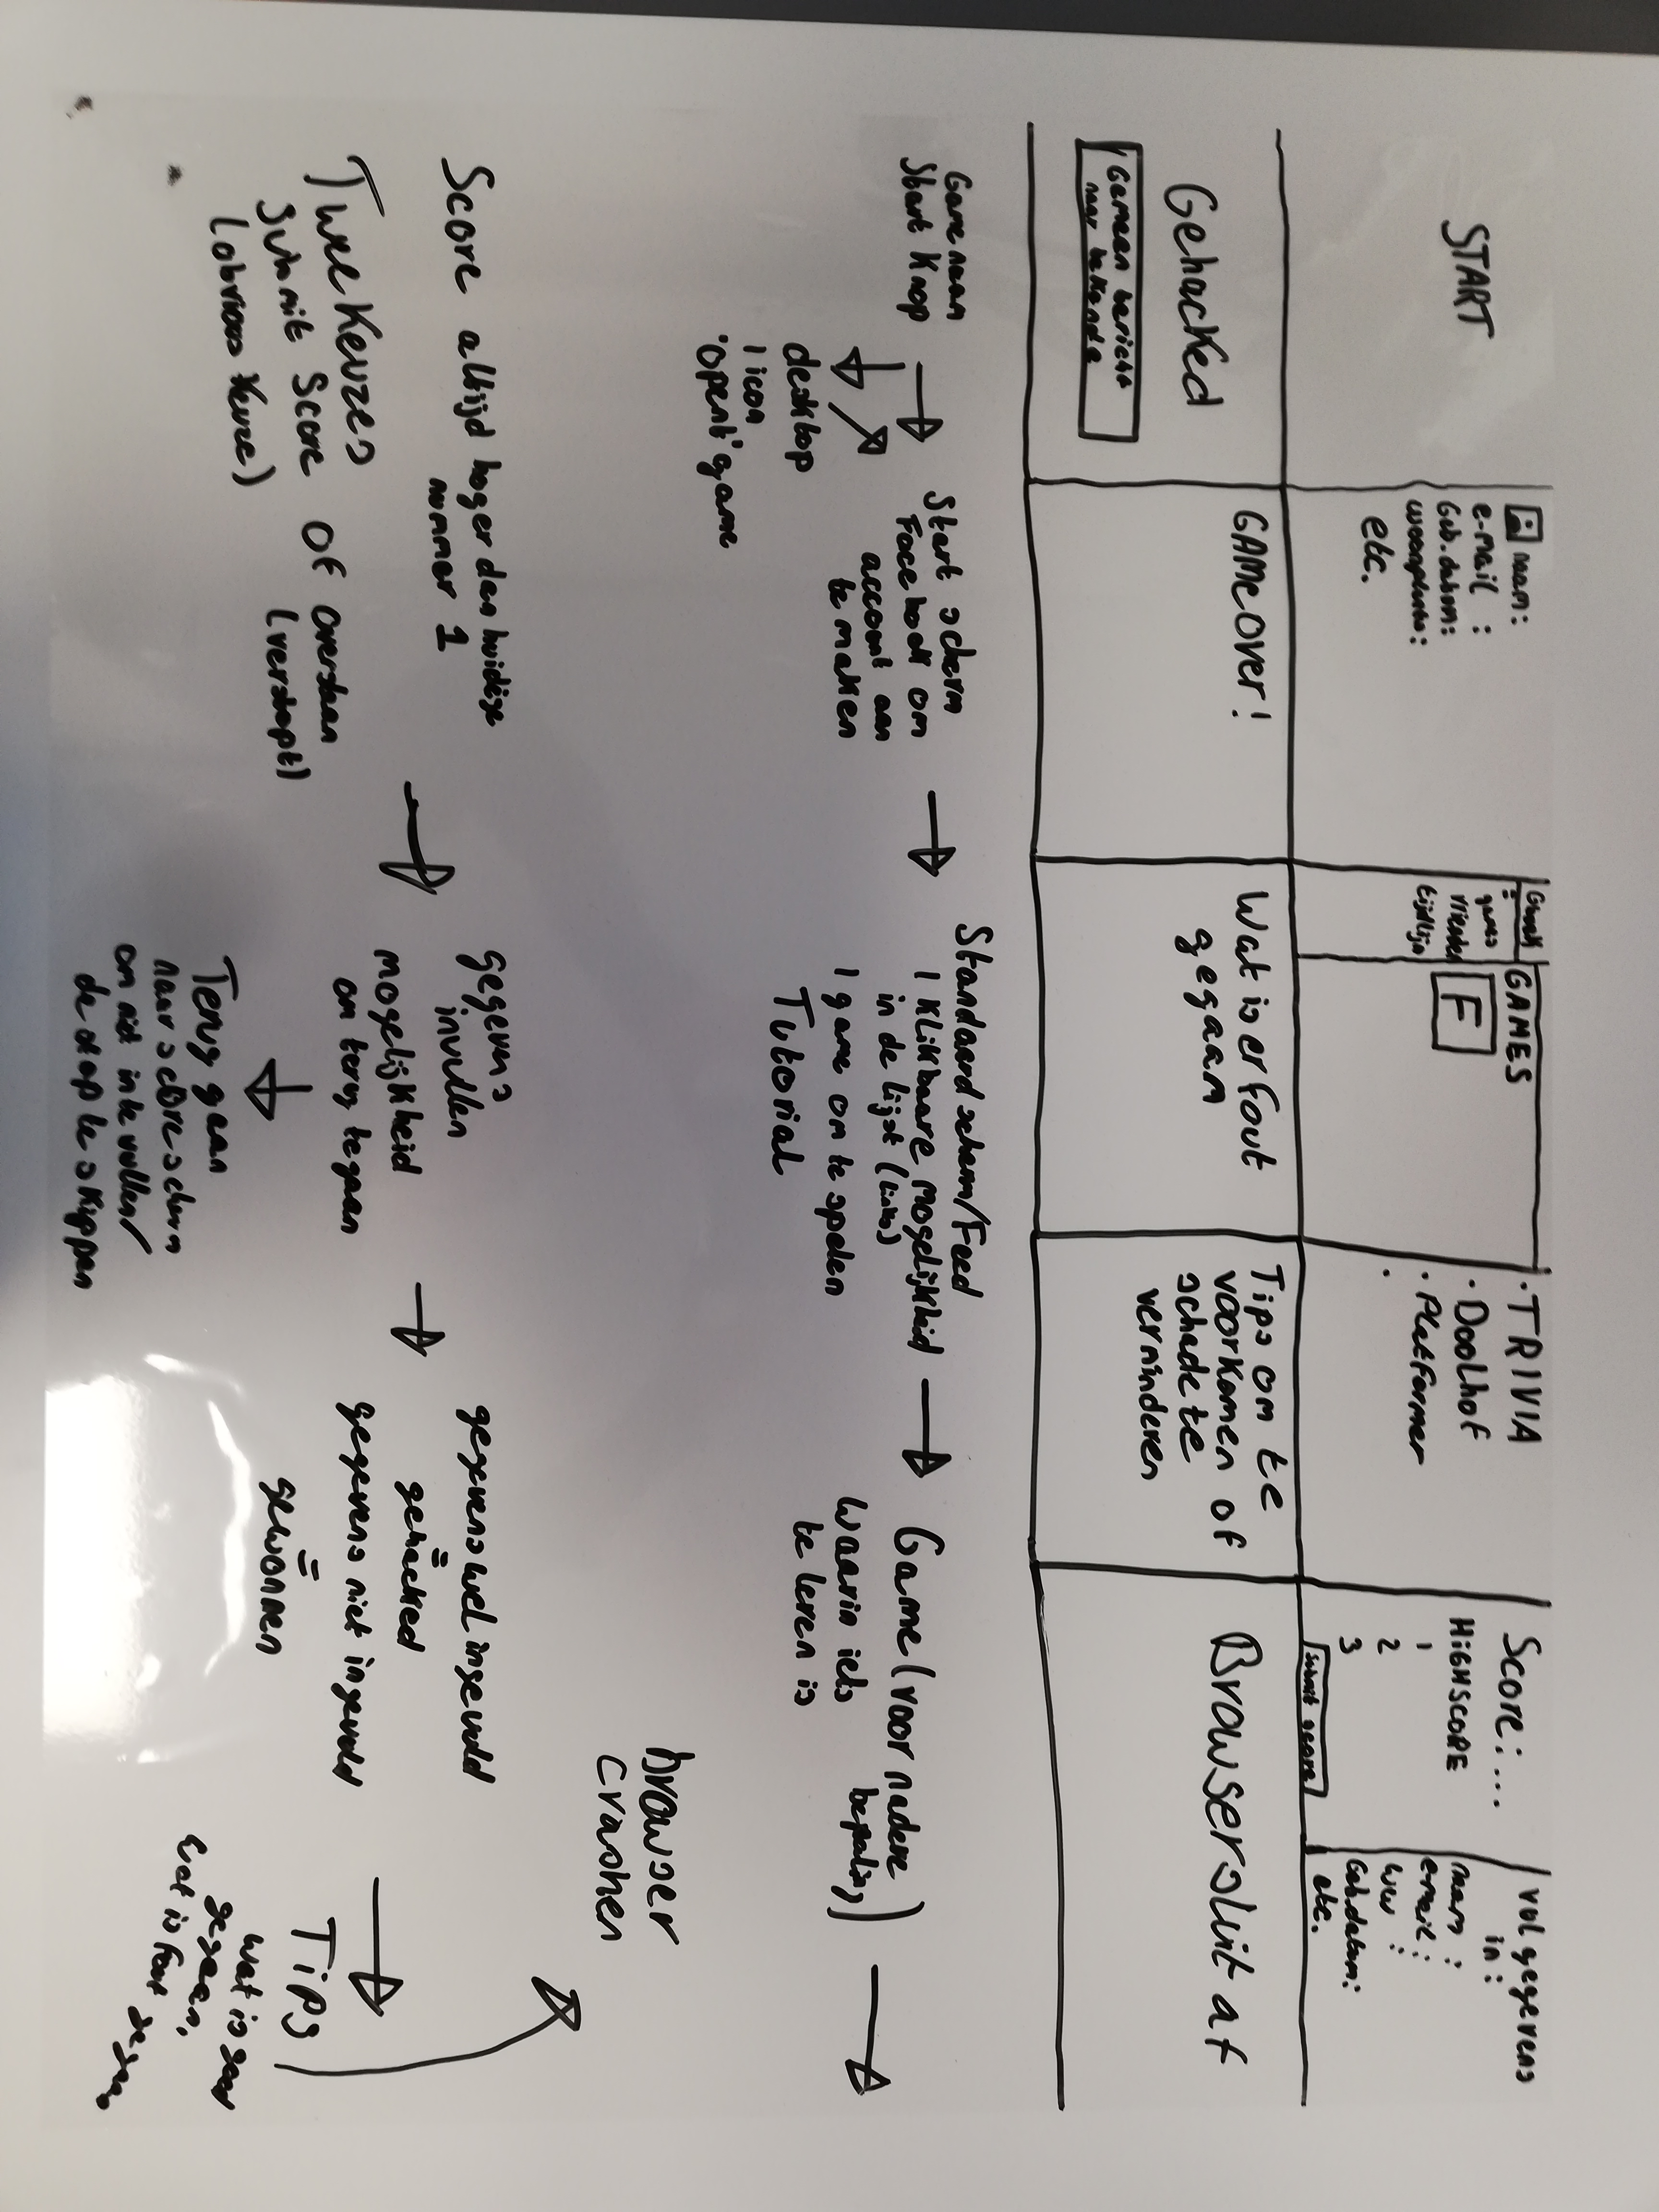 START
naam:
e-mail :
Geb.datum:
woonplaats:
etc.
games
vrienden
tijdlijn
GAMES
F
· TRIVIA
· Doolhof
· Platformer
·
Score: ...
HiGHSCORE
1
2
3
Submit score
vul gegevens
in :
naam :
e-mail :
ww :
Geb.datum:
etc.
Gehacked
Gemeen bericht
naar bekende
GAMEOVER!
Wat is er fout
gegaan
Tips om te
voorkomen of
schade te
verminderen
Browser sluit af
Game naam
Start Knop
desktop
1 icon
"opent" game
Start scherm
Facebook om
account aan
te maken
Standaard scherm/Feed
1 Klikbaare mogelijkheid
in de lijst (links)
1 game om te spelen
Tutorial
Game (voor nadere
bepaling)
waarin iets
te leren is
browser
crashen
Score altijd hoger dan huidige
nummer 1
Twee Keuzes
Submit Score of overslaan
(obvious Keuze) (verstopt)
gegevens
invullen
mogelijkheid
om terug te gaan
Terug gaan
naar score scherm
om niet in te vullen/
de stap te skippen
gegevens wel ingevuld
=
gehacked
gegevens niet ingevuld
=
gewonnen
Tips
wat is goed
gegaan,
wat is fout gegaan